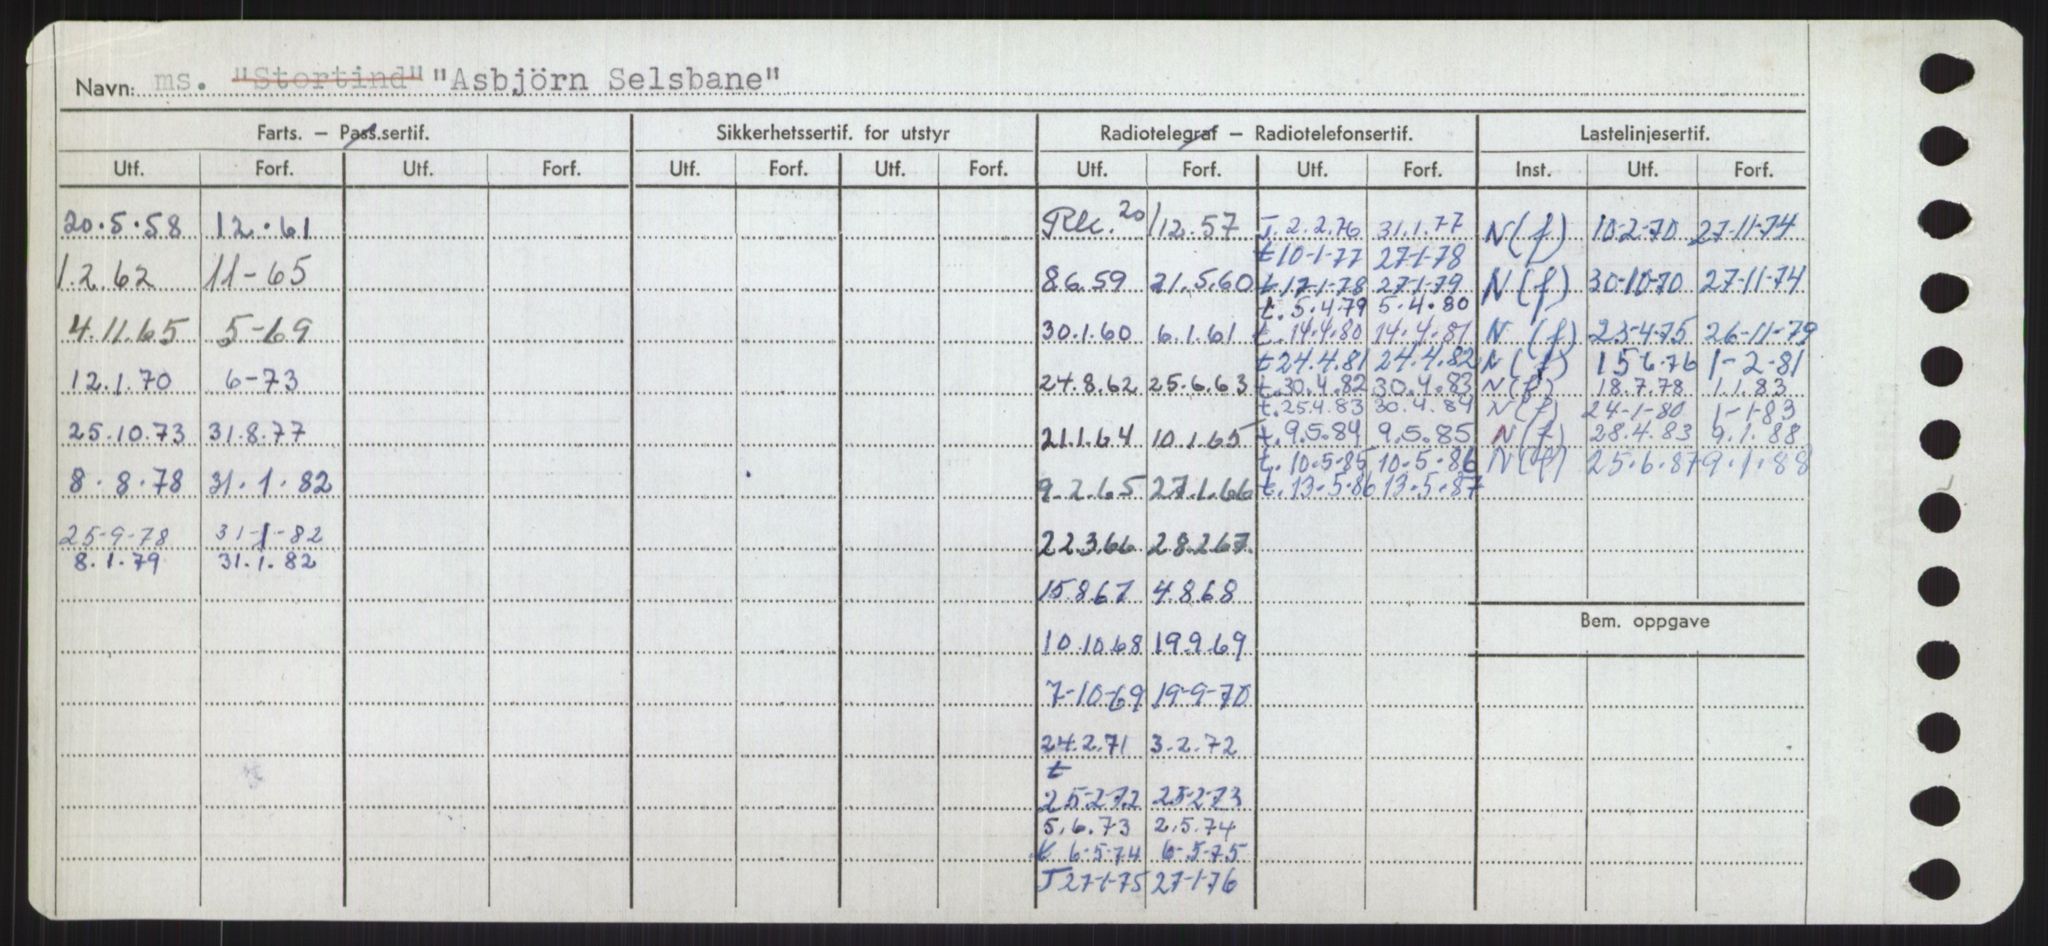 Navn: ms. "Stortind" "Asbjörn Selsbane"
Farts. – Pass.sertif. Sikkerhetssertif. for utstyr Radiotelegraf – Radiotelefonsertif. Lastelinjesertif.
Utf. Forf. Utf. Forf. Utf. Forf. Utf. Forf. Utf. Forf. Utf. Forf. Inst. Utf. Forf.
20.5.58 12.61 20/12.57 T. 2.2.76 31.1.77 N(f) 10-2-70 27-11-74
t 10-1-77 27-1-78
1.2.62 11-65 8.6.59 21.5.60 t. 17-1-78 27-1-79 N(f) 30-10-70 27-11-74
t. 5.4.79 5.4.80
4.11.65 5-69 30.1.60 6.1.61 t. 14.4.80 14.4.81 N(f) 23-4-75 26-11-79
t 24.4.81 24.4.82 N(f) 15.6.76 1-2-81
12.1.70 6-73 24.8.62 25.6.63 t. 30.4.82 30.4.83 N(f) 18.7.78 1.1.83
t. 25.4.83 30.4.84 N(f) 24-1-80 1-1-83
25.10.73 31.8.77 21.1.64 10.1.65 t. 9.5.84 9.5.85 N(f) 28.4.83 9.1.88
t. 10.5.85 10.5.86 N(f) 25.6.87 9.1.88
8.8.78 31.1.82 9.2.65 27.1.66 t. 13.5.86 13.5.87
25-9-78 31-1-82 22.3.66 28.2.67.
8.1.79 31.1.82
15.8.67 4.8.68
Bem. oppgave
10.10.68 19.9.69
7-10-69 19-9-70
24.2.71 3.2.72
t
25-2-72 25-2-73
5.6.73 2.5.74
t 6-5-74 6-5-75
T 27-1-75 27-1-76